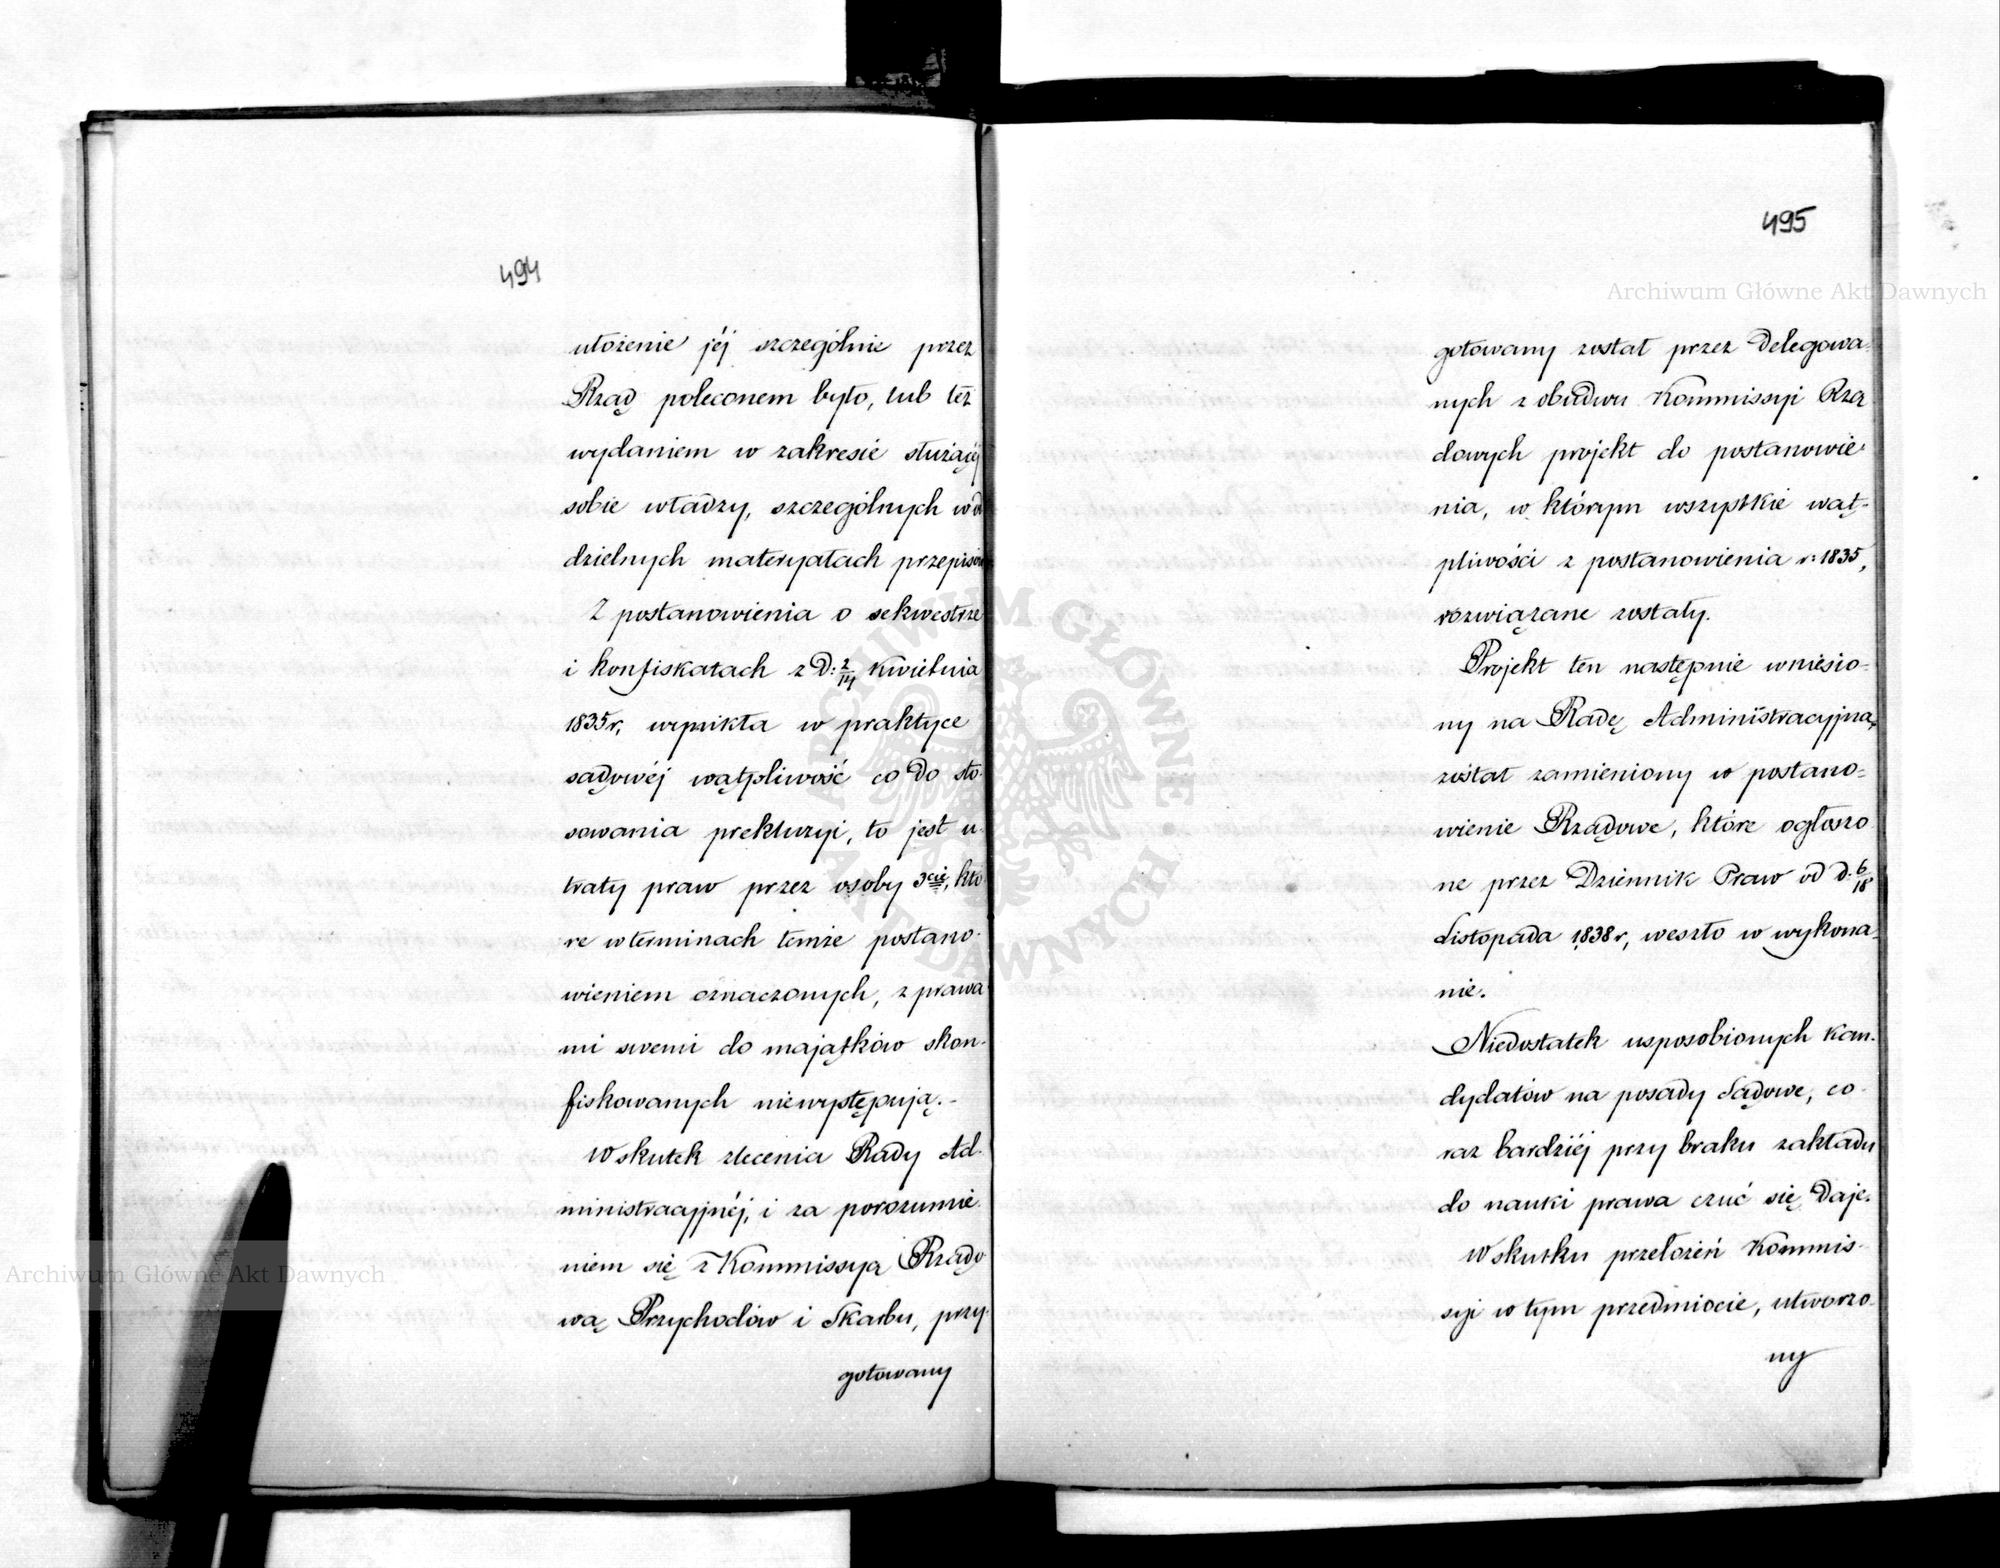 494
ułożenie jéj szczególnie przez
Rząd poleconem było, lub też
wydaniem w zakresie służącéj
sobie władzy, szczególnych w od
dzielnych materyałach przepisów
Z postanowienia o sekwestrze
i konfiskatach z D: 2/14 Kwietnia
1835 r, wynikła w praktyce
sądowéj wątpliwość co do sto-
sowania prekluzyi, to jest u-
traty praw przez osoby 3cie, któ
re w terminach temże postano-
wieniem oznaczonych, z prawa
mi swemi do majątków skon-
fiskowanych niewystępują.-
W skutek zlecenia Rady Ad-
ministracyjnéj, i za porozumie
niem się z Kommissyą Rządo
wą Przychodów i Skarbu, przy-
gotowany
495
gotowany został przez Delegowa-
nych z obudwu Kommissyi Rzą
dowych projekt do postanowie-
nia, w którym wszystkie wąt-
pliwości z postanowienia r. 1835,
rozwiązane zostały.
Projekt ten następnie wniesio-
ny na Radę Administracyjną,
został zamieniony w postano-
wienie Rządowe, które ogłoszo
ne przez Dziennik Praw od d. 6/18
Listopada 1838 r, weszło w wykona-
nie.
Niedostatek usposobionych kan-
dydatów na posady Sądowe, co-
raz bardziéj przy braku zakładu
do nauki prawa czuć się daje.
W skutku przełożeń Kommis-
syi w tym przedmiocie, utworzo-
ny
Archiwum Główne Akt Dawnych
Archiwum Główne Akt Dawnych
ARCHIWUM GŁÓWNE • AKT DAWNYCH •